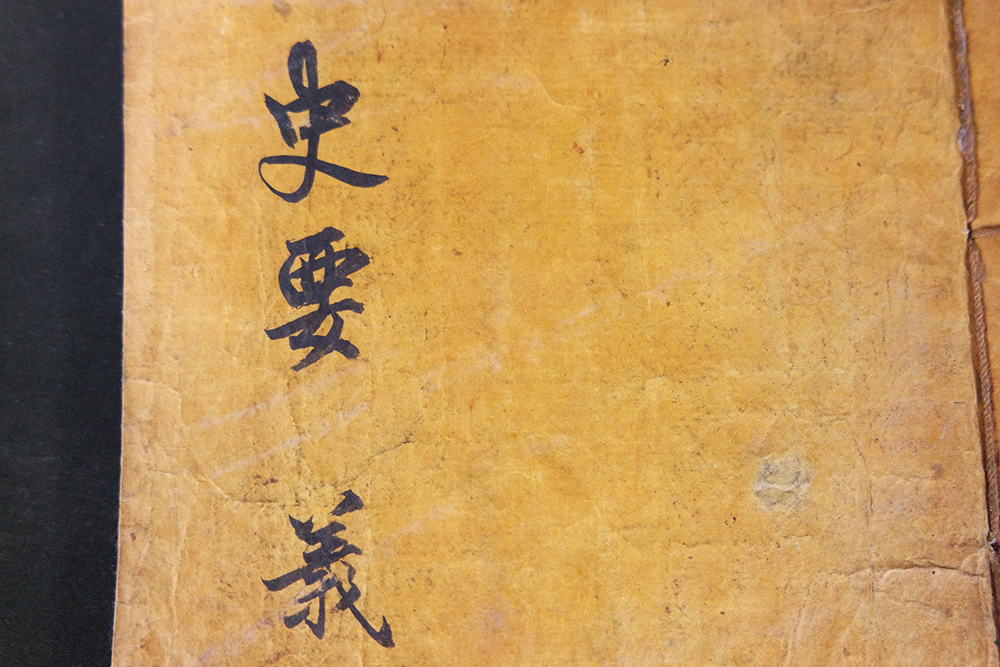 史要義